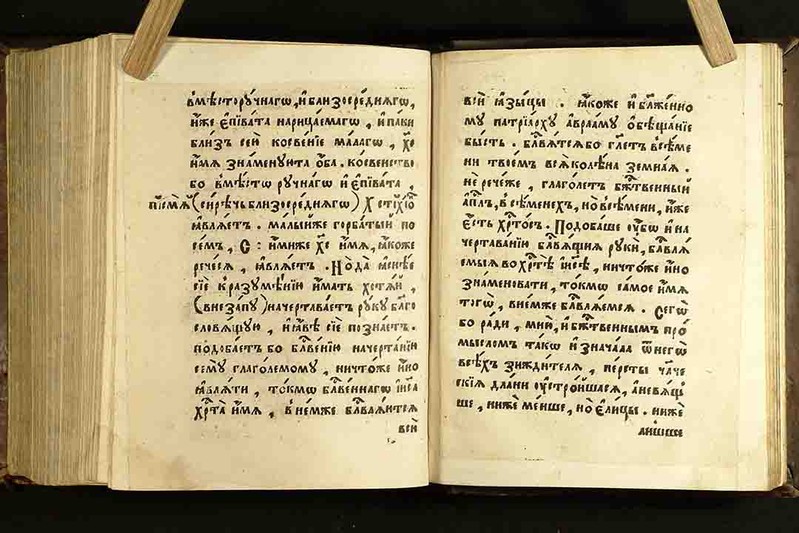 вмѣсторꙋ́чнагѡ, и҆ближосре́днягѡ,
и҆́же є҆пїва́та нарица́емагѡ, и҆ па́ки
бли́зъ сей косве́нїе ма́лагѡ, хс҃
и҆́мѧ зна́менꙋюта ѻ҆́ба. косве́нство
бо вмѣ́стѡ рꙋ́чнагѡ и҆ є҆пїва́та,
(си́рѣчь ближосре́днягѡ) х
ꙗ҆влѧ́етъ. ма́лыйже горба́тый по
се́мъ, с: и҆́миже хс҃ и҆́мѧ, ꙗ҆́коже
рече́сѧ, ꙗ҆влѧ́етъ. Но да ꙗ҆снѣ́е
сїѐ к̾разꙋмѣ́нїю и҆́мать хотѧ́й,
(внеза́пꙋ) начертава́етъ рꙋ́кꙋ бл҃го
словѧ́щꙋю, и҆ ꙗ҆́вѣ сїѐ позна́етъ.
подоба́етъ бо бл҃ве́нїю начерта́нїи
семꙋ̀ глаго́лемомꙋ, ничто́же и҆́но
ꙗ҆влѧ́ти, то́кмѡ бл҃ве́ннагѡ і҆и҃са
хрⷭ҇та̀ и҆́мѧ, в̾не́мже бл҃вѧ́тсѧ
всѝ
всѝ ꙗ҆зы́цы. ꙗ҆́коже и҆ бл҃же́нно
мꙋ патрїа́рхꙋ а҆враа́мꙋ ѻ҆бѣща́нїе
бы́сть. бл҃вѧ́тсѧ бо гл҃етъ в̾сѣ́ме
ни твое́мъ всѧ̑ колѣ́на земна́ѧ.
не рече́же, глаго́летъ бж҃е́ственный
а҆пⷭ҇лъ, в̾сѣ́менехъ, но в̾сѣ́мени, и҆́же
є҆́сть хрⷭ҇то́съ. Подоба́ше ᲂу҆́бѡ и҆ на
чертава́нїю бл҃вѧ́щїѧ рꙋкѝ, бл҃влѧ́
емыѧ во хрⷭ҇тѣ̀ і҆и҃сѣ, ничто́же и҆́но
знаменова́ти, то́кмѡ са́мое и҆́мѧ
тогѡ̀, в̾не́мже бл҃влѧ́емсѧ. Сегѡ̀
бо ра́ди, мнѝ, и҆ бж҃е́ственнымъ про
мы́сломъ та́кѡ и҆знача́ла ѿнегѡ̀
всѣ́хъ зижди́телѧ, пе́рсты чл҃че
скїѧ дла́ни ᲂу҆стро́ишасѧ, а҆ невѧ́щ
ше, нижѐ ме́нше, но є҆ли́цы. нижѐ
ли́шше